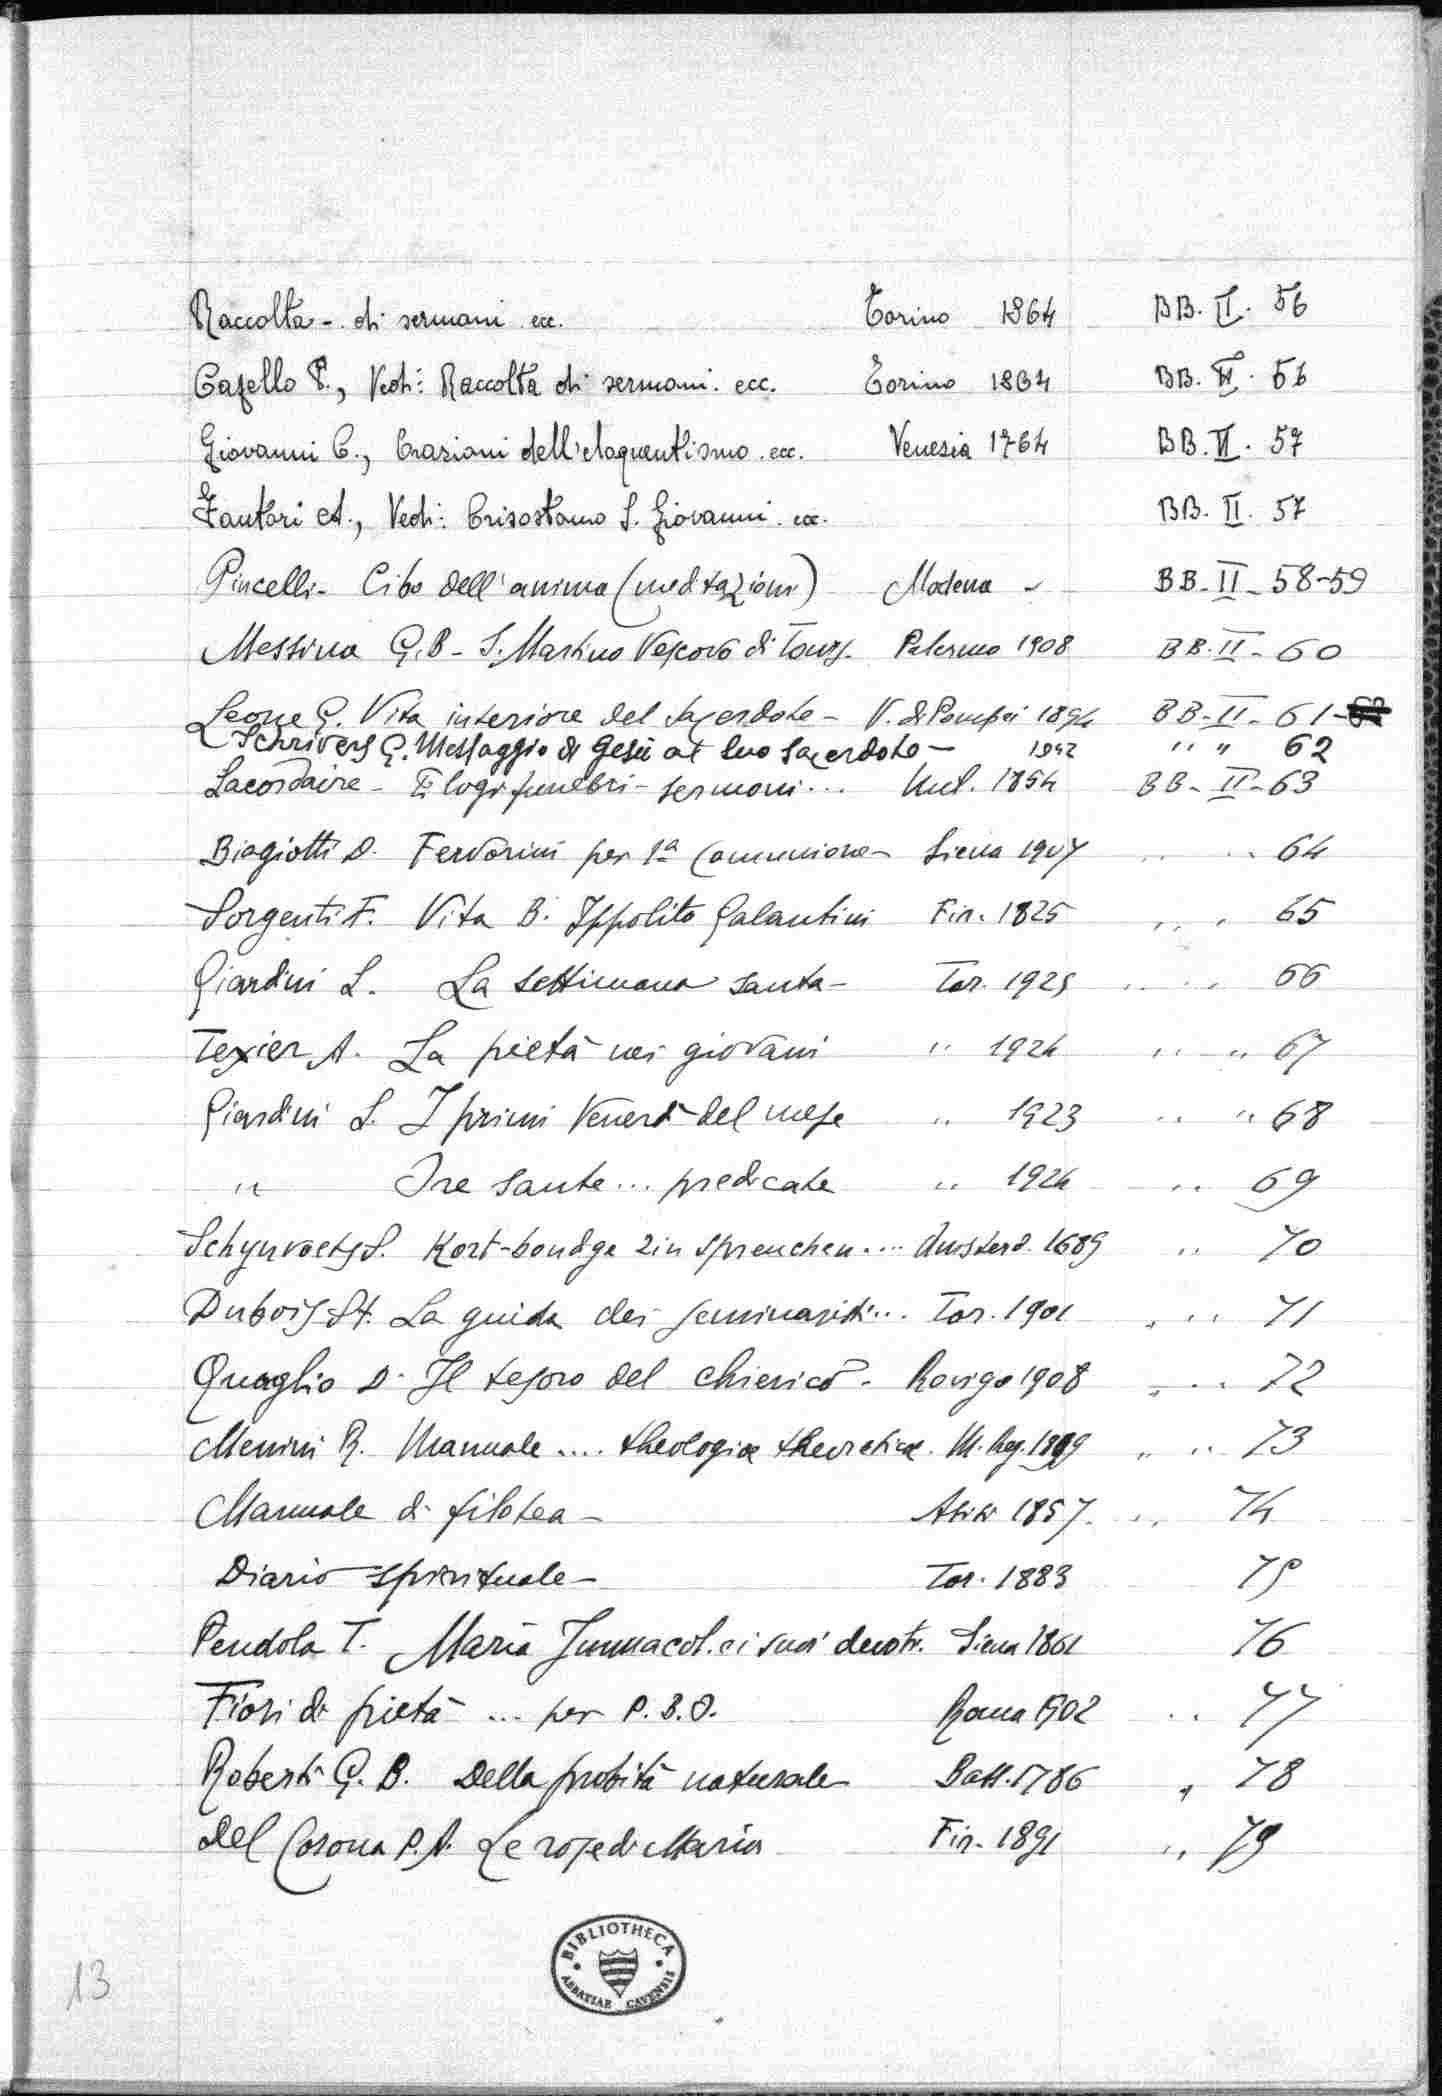 Raccolta - di sermoni ecc. Torino 1864 BB. II. 56
Cafello P., Vedi: Raccolta di sermoni. ecc. Torino 1864 BB. II. 56
Giovanni C., Orazioni dell'eloquentismo. ecc. Venezia 1764 BB. II. 57
Fantori A., Vedi: Crisostomo S. Giovanni. ecc. BB. II. 57
Pincelli - Cibo dell'anima (meditazioni) Modena - BB-II-58-59
Messina G.B - S. Martino Vescovo di Tours. Palermo 1908 BB-II-60
Leone G. Vita interiore del Sacerdote - V. di Pompei 1894 BB-II-61-
Schrivers G. Messaggio di Gesù al suo Sacerdote - 1942 " " 62
Lacordaire - Elogi funebri - sermoni... Mil. 1854 BB-II-63
Biagiotti D. Fervorini per 1ª Comunione - Siena 1907 " " 64
Sorgenti F. Vita B. Ippolito Galantini Fir. 1825 " " 65
Giardini L. La settimana santa - Tor. 1925 " " 66
Texier A. La pietà nei giovani " 1924 " " 67
Giardini L. I primi Venerdì del mese " 1923 " " 68
" Ore sante... predicate " 1924 " 69
Schynvoets S. Kort-bondge zin spreuchen.... Amsterd. 1689 " 70
Dubois St. La guida dei seminaristi... Tor. 1901 " " 71
Quaglio D. Il tesoro del chierico - Rovigo 1908 " " 72
Menini R. Manuale .... theologiæ theoreticæ. M. Reg. 1899 " " 73
Manuale di filotea - Assisi 1857. " 74
Diario spirituale - Tor. 1883 75
Pendola T. Maria Immacol. e i suoi devoti. Siena 1861 76
Fiori di pietà ... per P.B.O. Roma 1902 " 77
Roberti G.B. Della probità naturale Bass. 1786 " 78
Del Corona P.A. Le rose di Maria Fir. 1891 " 79
BIBLIOTHECA
ABBATIAE CAVENSIS
13